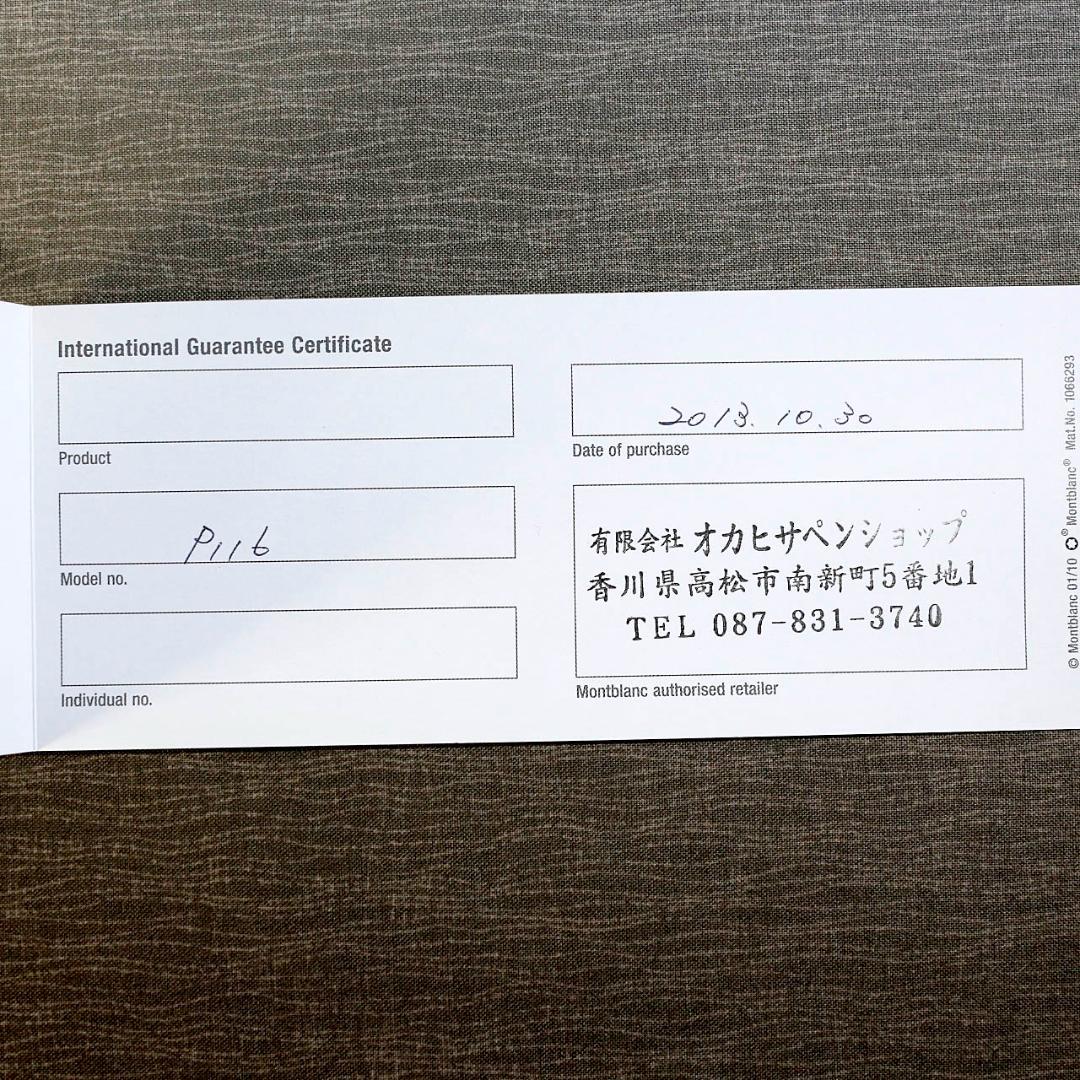 International Guarantee Certificate
Product
P116
Model no.
Individual no.
2013. 10. 30
Date of purchase
有限会社 オカヒサペンショップ
香川県高松市南新町5番地1
TEL 087-831-3740
Montblanc authorised retailer
© Montblanc 01/10 ® Montblanc® Mat.No. 1066293